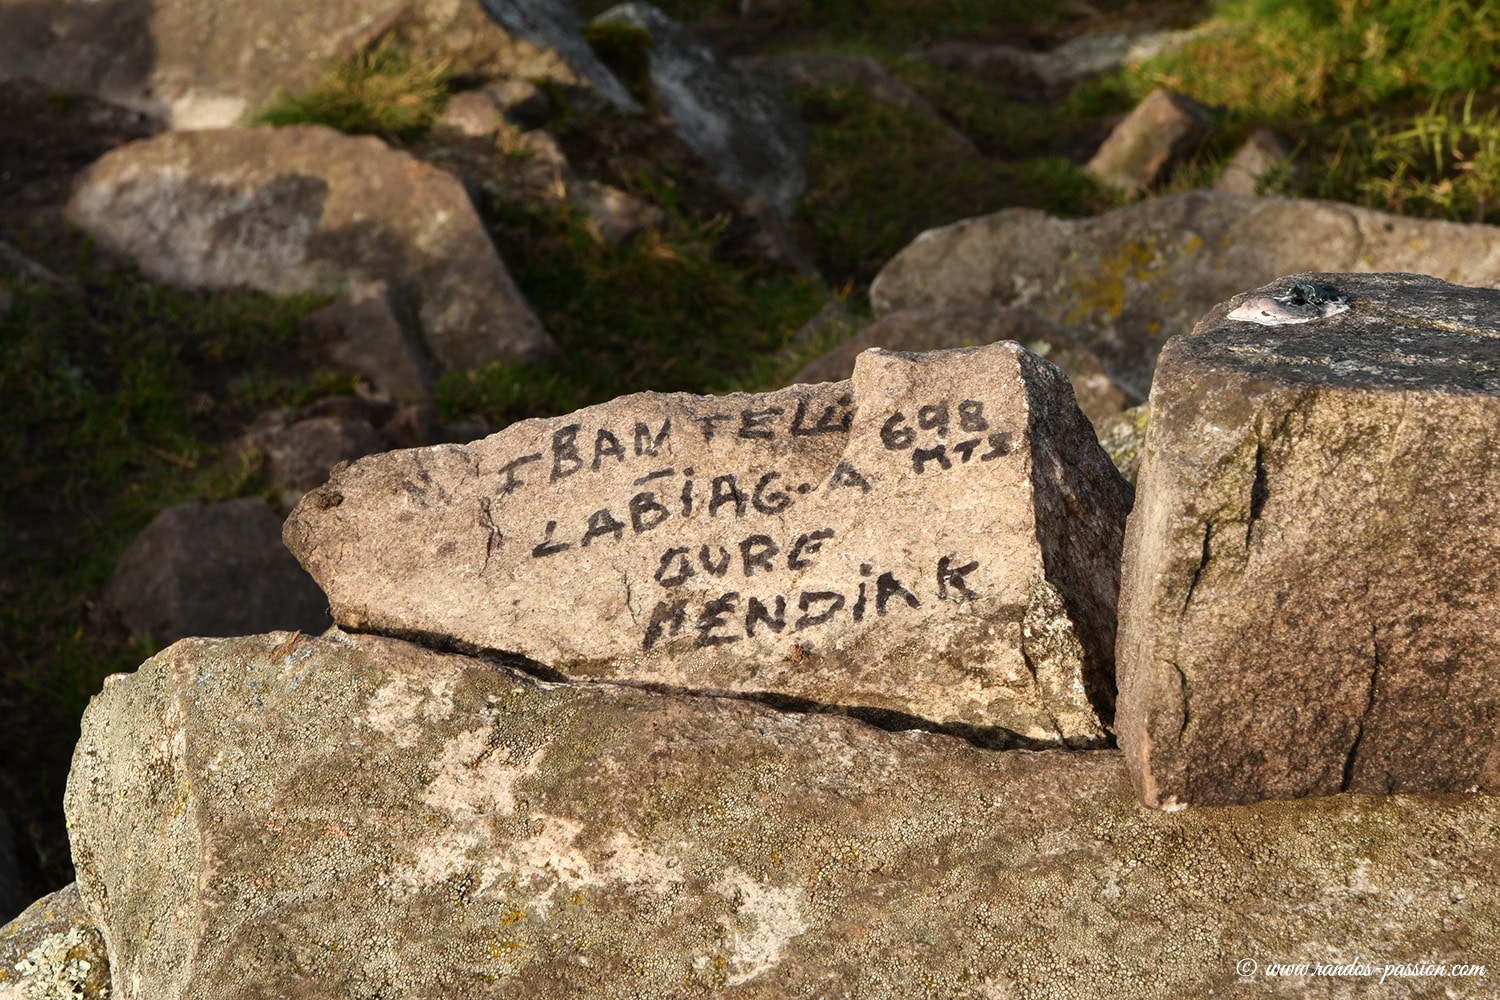 IBANTELLI 698
MTS
LABIAG.A
GURE
MENDIAK
© www.randos-passion.com